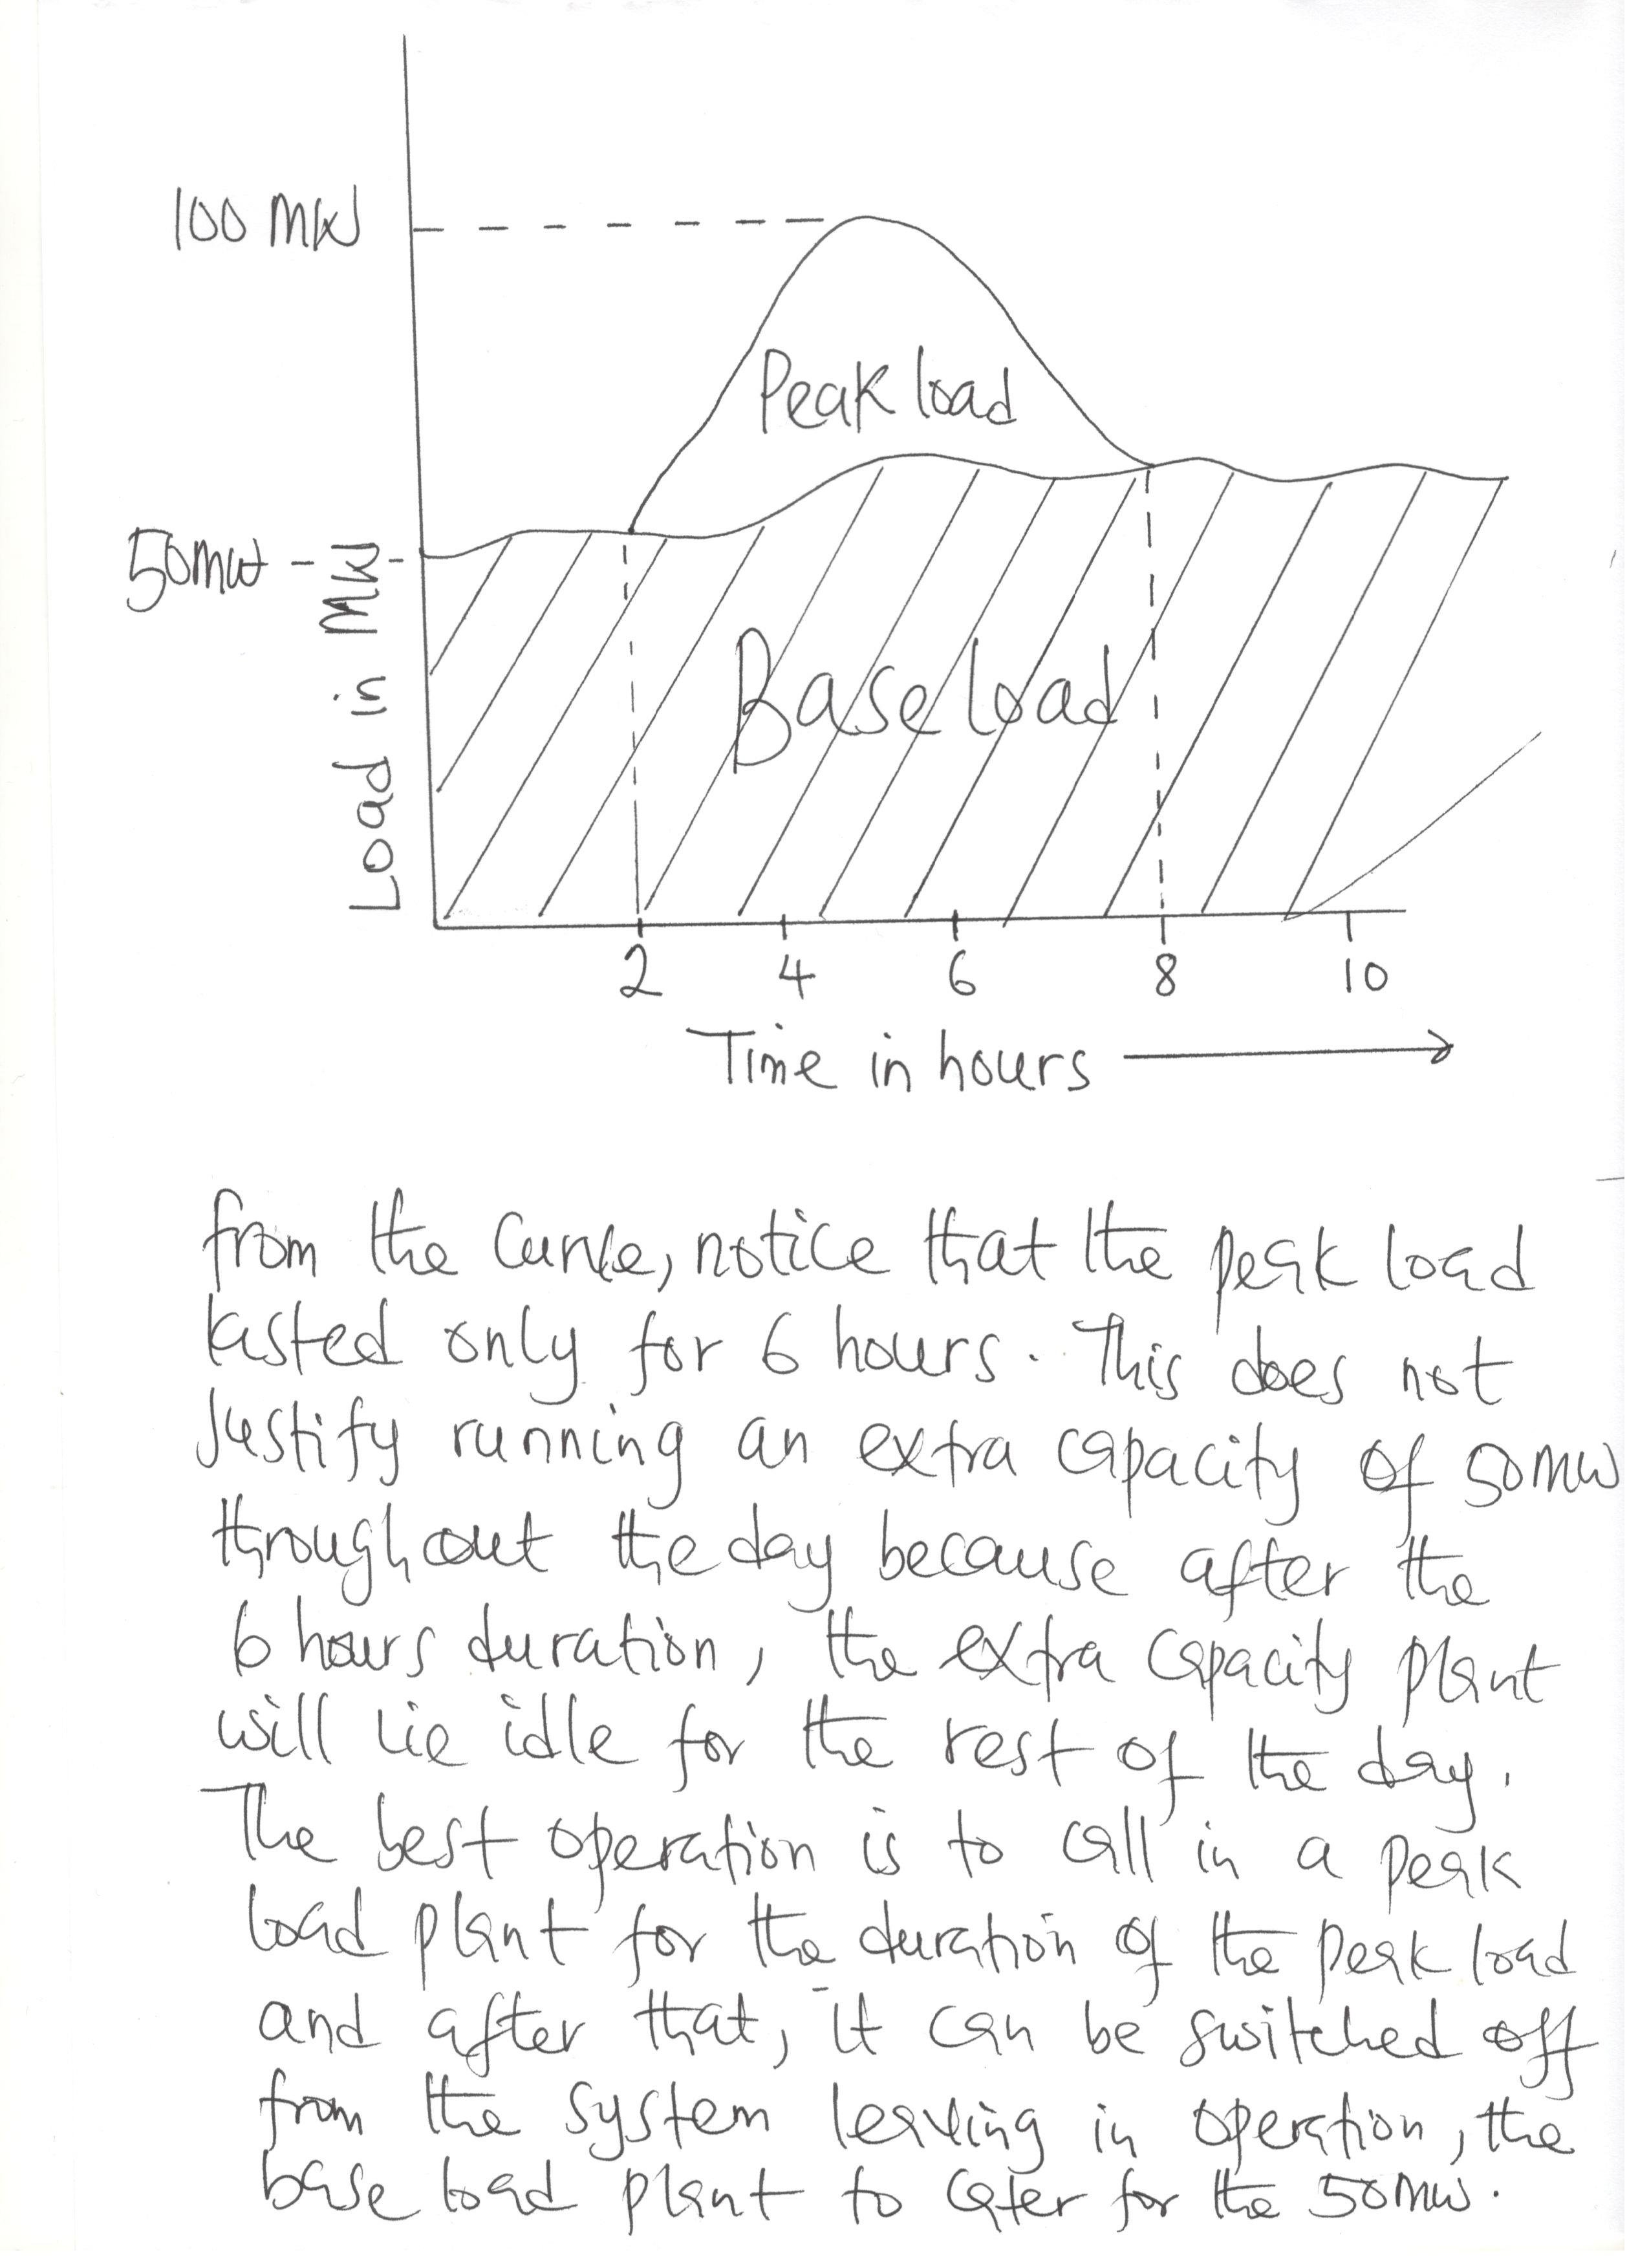 100 MW
Peak load
50mw
Load in MW
Base load
2 4 6 8 10
Time in hours
from the Curve, notice that the peak load
lasted only for 6 hours. This does not
Justify running an extra capacity of 50mw
throughout the day because after the
6 hours duration, the extra capacity plant
will lie idle for the rest of the day.
The best operation is to call in a peak
load plant for the duration of the peak load
and after that, it can be switched off
from the system leaving in operation, the
base load plant to cater for the 50mw.